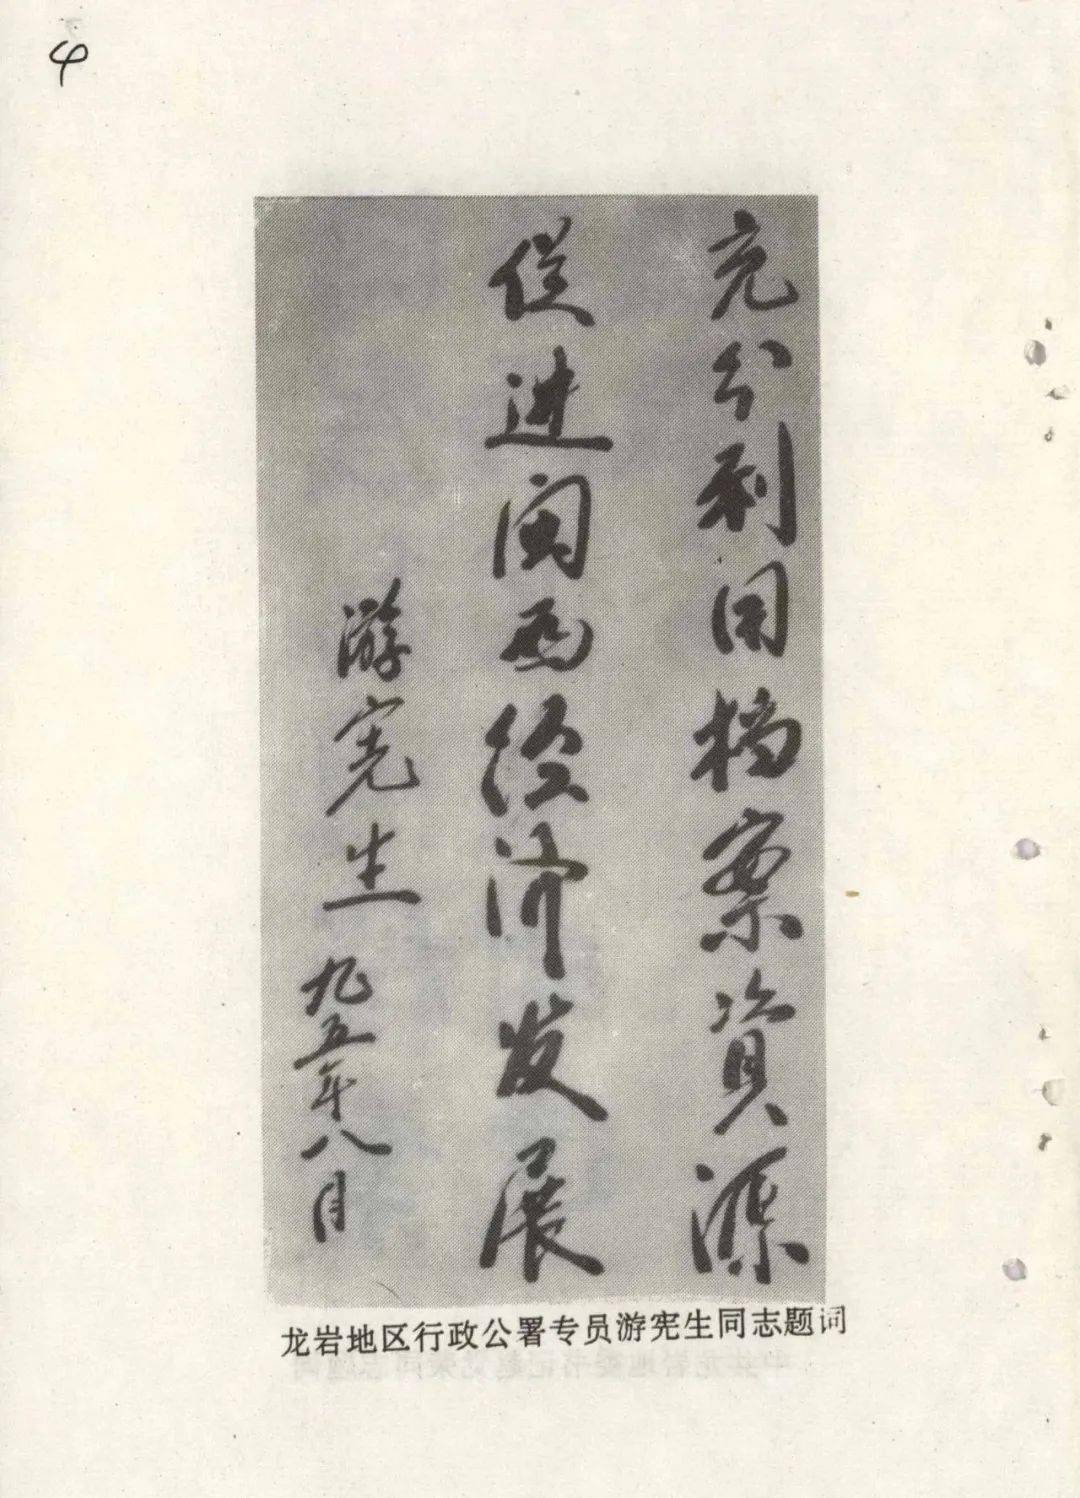 4
充分利用档案資源
促进闽西经济发展
游宪生
九五年八月
龙岩地区行政公署专员游宪生同志题词